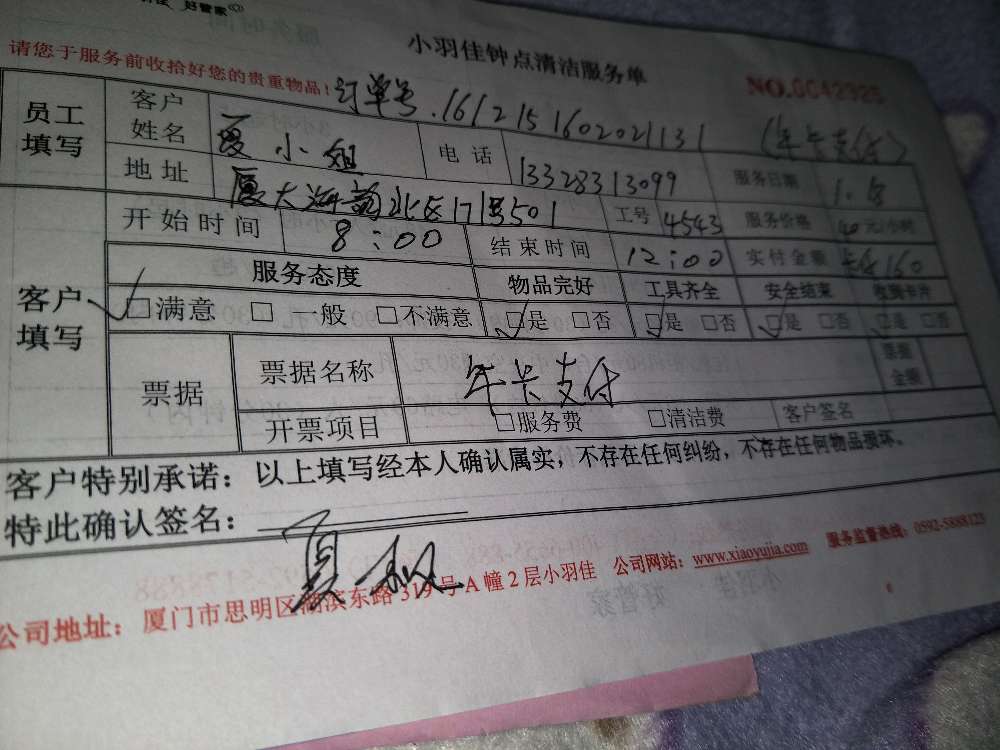 好管家
小羽佳钟点清洁服务单
请您于服务前收拾好您的贵重物品! 订单号.161215160202 1131 (年卡支付)
员工填写 客户姓名 夏小姐 电话 13328313099 服务日期
地址 厦大海韵北区17号501 工号 4543 服务价格 40元/小时
客户填写 开始时间 8:00 结束时间 12:00 实付金额 160
服务态度 物品完好 工具齐全 安全结束 收到卡片
□满意 □一般 □不满意 □是 □否 □是 □否 □是 □否 □是 □否
票据 票据名称 年卡支付 票据金额
开票项目 □服务费 □清洁费 客户签名
客户特别承诺:以上填写经本人确认属实,不存在任何纠纷,不存在任何物品损坏。
特此确认签名:
公司地址:厦门市思明区湖滨东路319号A幢2层小羽佳 公司网站:www.xiaoyujia.com 服务监督热线:0592-5888123